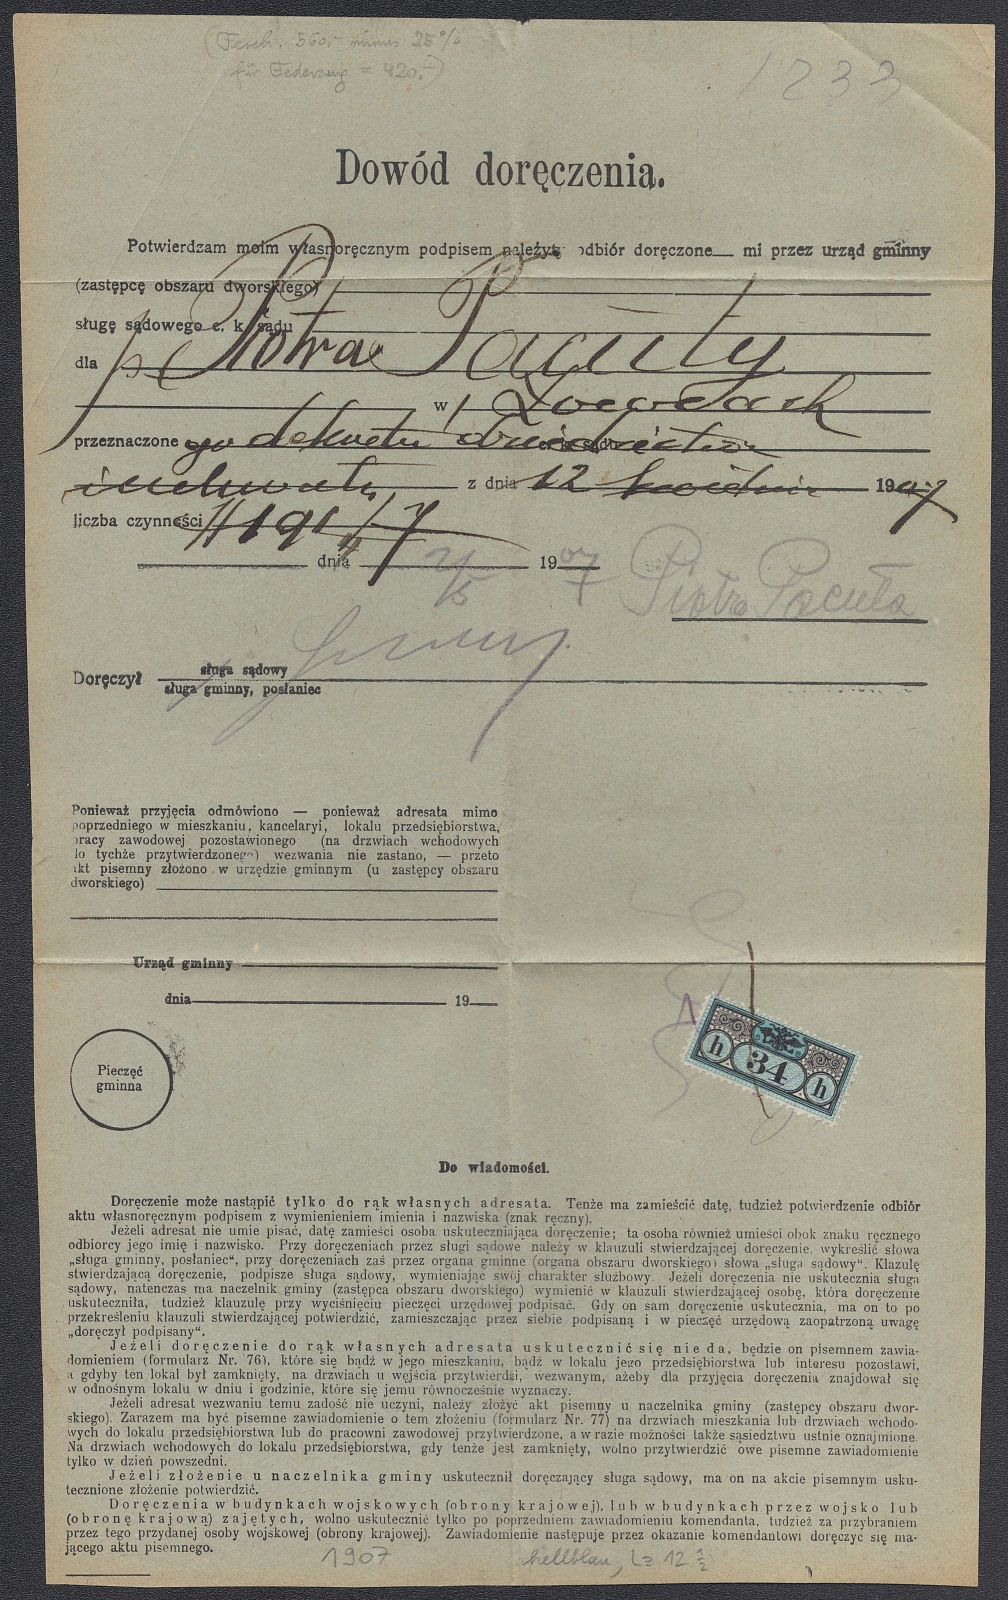 (Ferch. 560,- minus 25%
für Federzug = 420,-)
1233
Dowód doręczenia.
Potwierdzam moim własnoręcznym podpisem należyty odbiór doręczone mi przez urząd gminny
(zastępcę obszaru dworskiego)
sługę sądowego c. k. sądu
dla Piotra Pacuły
w
przeznaczone go dekretu dziedzictwa
i uchwały z dnia 12 kwietnia 1907
liczba czynności 191/7
dnia 2/5 1907 Piotr Pacuła
Doręczył sługa sądowy
sługa gminny, posłaniec
Ponieważ przyjęcia odmówiono — ponieważ adresata mimo
poprzedniego w mieszkaniu, kancelaryi, lokalu przedsiębiorstwa,
pracy zawodowej pozostawionego (na drzwiach wchodowych
do tychże przytwierdzonego) wezwania nie zastano, — przeto
akt pisemny złożono w urzędzie gminnym (u zastępcy obszaru
dworskiego)
Urząd gminny
dnia 19
Pieczęć
gminna
h 34 h
Do wiadomości.
Doręczenie może nastąpić tylko do rąk własnych adresata. Tenże ma zamieścić datę, tudzież potwierdzenie odbiór
aktu własnoręcznym podpisem z wymienieniem imienia i nazwiska (znak ręczny).
Jeżeli adresat nie umie pisać, datę zamieści osoba uskuteczniająca doręczenie; ta osoba również umieści obok znaku ręcznego
odbiorcy jego imię i nazwisko. Przy doręczeniach przez sługi sądowe należy w klauzuli stwierdzającej doręczenie, wykreślić słowa
„sługa gminny, posłaniec“, przy doręczeniach zaś przez organa gminne (organa obszaru dworskiego) słowa „sługa sądowy“. Klazulę
stwierdzającą doręczenie, podpisze sługa sądowy, wymieniając swój charakter służbowy. Jeżeli doręczenia nie uskutecznia sługa
sądowy, natenczas ma naczelnik gminy (zastępca obszaru dworskiego) wymienić w klauzuli stwierdzającej osobę, która doręczenie
uskuteczniła, tudzież klauzulę przy wyciśnięciu pieczęci urzędowej podpisać. Gdy on sam doręczenie uskutecznia, ma on to po
przekreśleniu klauzuli stwierdzającej potwierdzić, zamieszczając przez siebie podpisaną i w pieczęć urzędową zaopatrzoną uwagę
„doręczył podpisany“.
Jeżeli doręczenie do rąk własnych adresata uskutecznić się nie da, będzie on pisemnem zawia-
domieniem (formularz Nr. 76), które się bądź w jego mieszkaniu, bądź w lokalu jego przedsiębiorstwa lub interesu pozostawi,
a gdyby ten lokal był zamknięty, na drzwiach u wejścia przytwierdzi, wezwanym, ażeby dla przyjęcia doręczenia znajdował się
w odnośnym lokalu w dniu i godzinie, które się jemu równocześnie wyznaczy.
Jeżeli adresat wezwaniu temu zadość nie uczyni, należy złożyć akt pisemny u naczelnika gminy (zastępcy obszaru dwor-
skiego). Zarazem ma być pisemne zawiadomienie o tem złożeniu (formularz Nr. 77) na drzwiach mieszkania lub drzwiach wchodo-
wych do lokalu przedsiębiorstwa lub do pracowni zawodowej przytwierdzone, a w razie możności także sąsiedztwu ustnie oznajmione.
Na drzwiach wchodowych do lokalu przedsiębiorstwa, gdy tenże jest zamknięty, wolno przytwierdzić owe pisemne zawiadomienie
tylko w dzień powszedni.
Jeżeli złożenie u naczelnika gminy uskutecznił doręczający sługa sądowy, ma on na akcie pisemnym usku-
tecznione złożenie potwierdzić.
Doręczenia w budynkach wojskowych (obrony krajowej), lub w budynkach przez wojsko lub
(obronę krajową) zajętych, wolno uskutecznić tylko po poprzedniem zawiadomieniu komendanta, tudzież za przybraniem
przez tego przydanej osoby wojskowej (obrony krajowej). Zawiadomienie następuje przez okazanie komendantowi doręczyć się ma-
jącego aktu pisemnego.
1907 hellblau, Lz 12 1/2